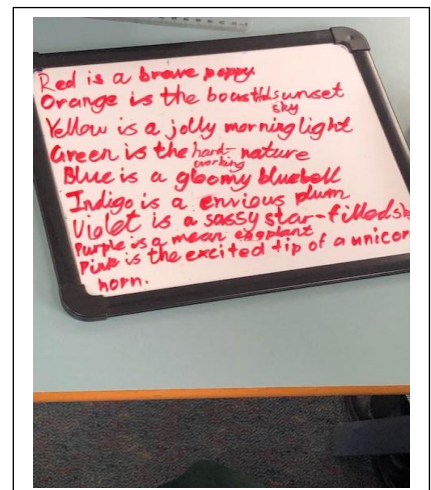 Red is a brave poppy.
Orange is the boastful sunset
sky
Yellow is a jolly morning light
Green is the hard-
working nature
Blue is a gloomy bluebell
Indigo is a envious plum
Violet is a sassy star-filled sk
Purple is a mean eggplant
Pink is the excited tip of a unicor
horn.